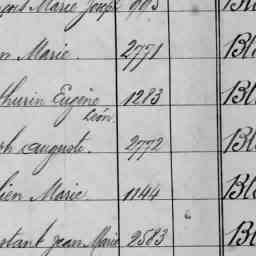 Marie Joseph
Marie. 2771 Bl
thurin Eugène 1283 Bl
Léon.
ph Auguste. 2772 Bl
ien Marie. 1144 Bl
stant Jean Marie 2583 Bl